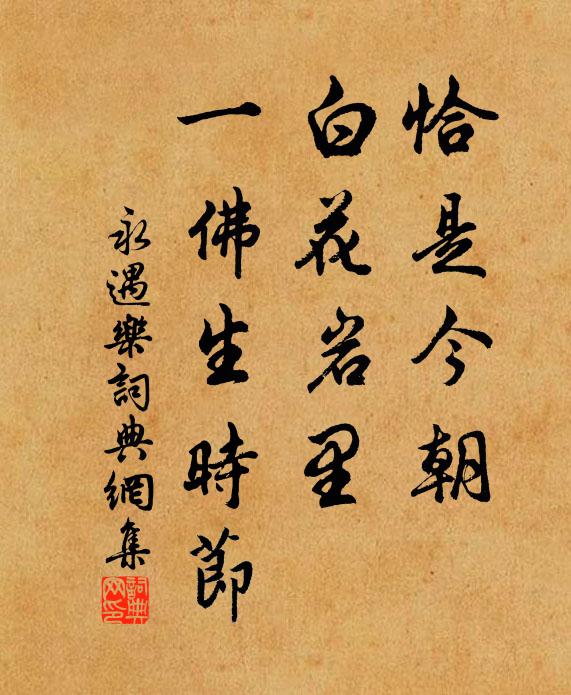 恰是今朝
白花岩里
一佛生時節
永遇樂詞典網集
詞典网印